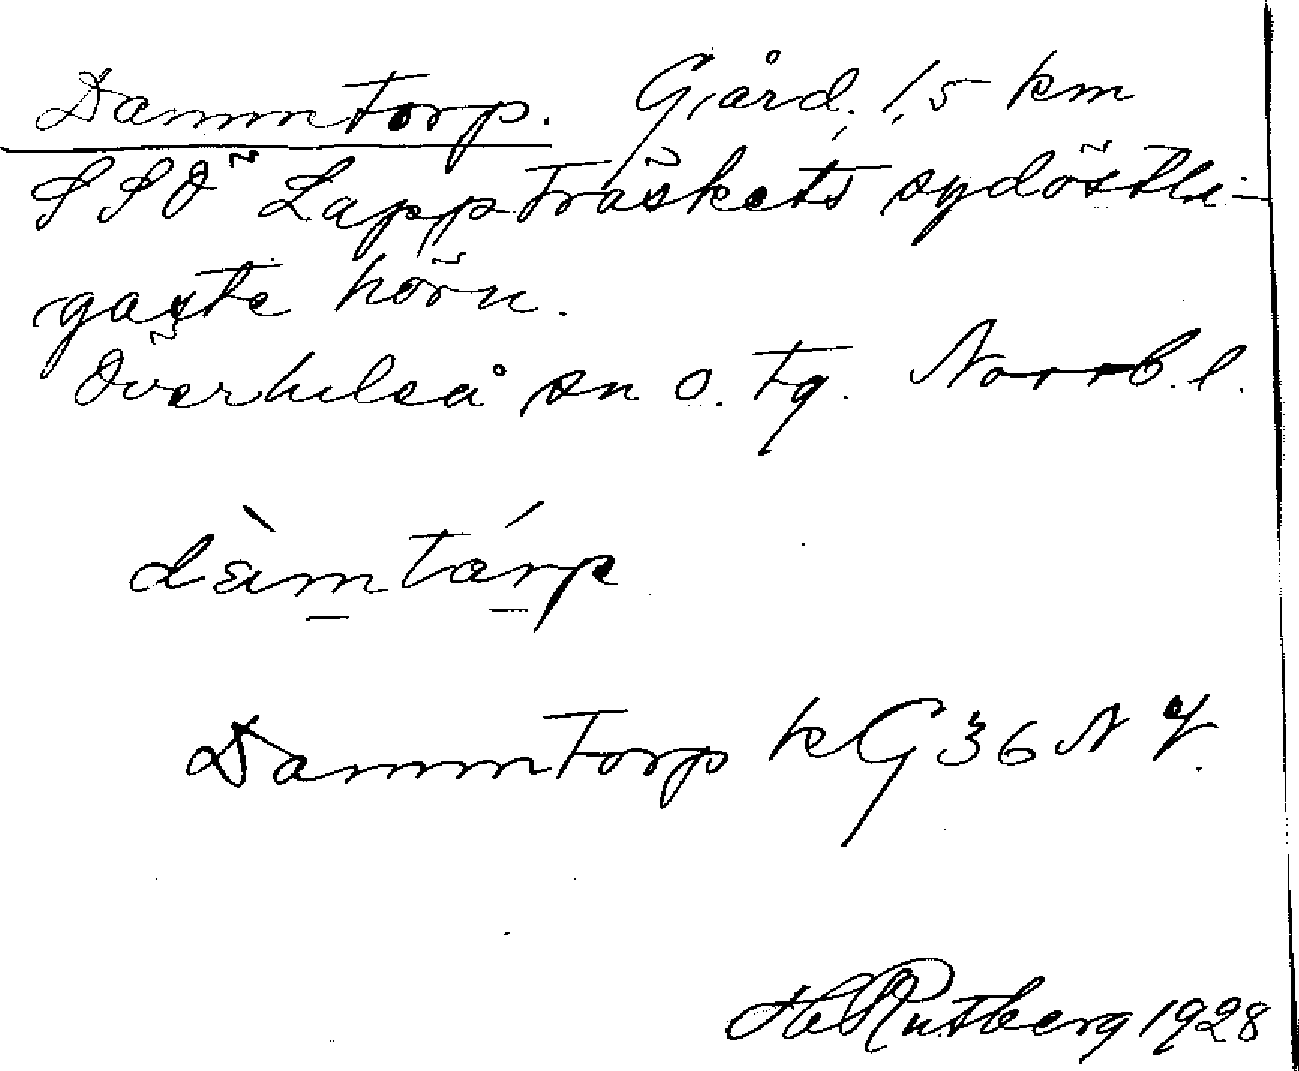 Dammtorp. Gård, 1,5 km
SSÖ Lappträskets sydöstli-
gaste hörn.
Överkuleå sn o. tg. Norrb. l.
dàmtárp
Dammtorp kG 36 N
H Rutberg 1928